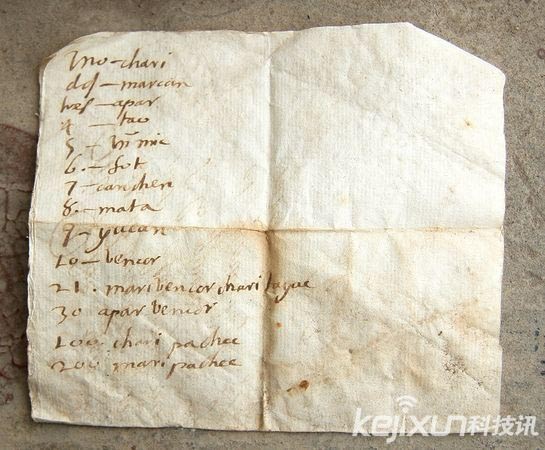 Uno - chari
dos - marcan
tres - apar
4 - tao
5 - himic
6. - sut
7 - canchen
8. - mata
9 - yucan
10 - bencor
21. maribencor chari tayac
30 apar bencor
100 chari pachac
200 mari pachac
kejixun科技讯